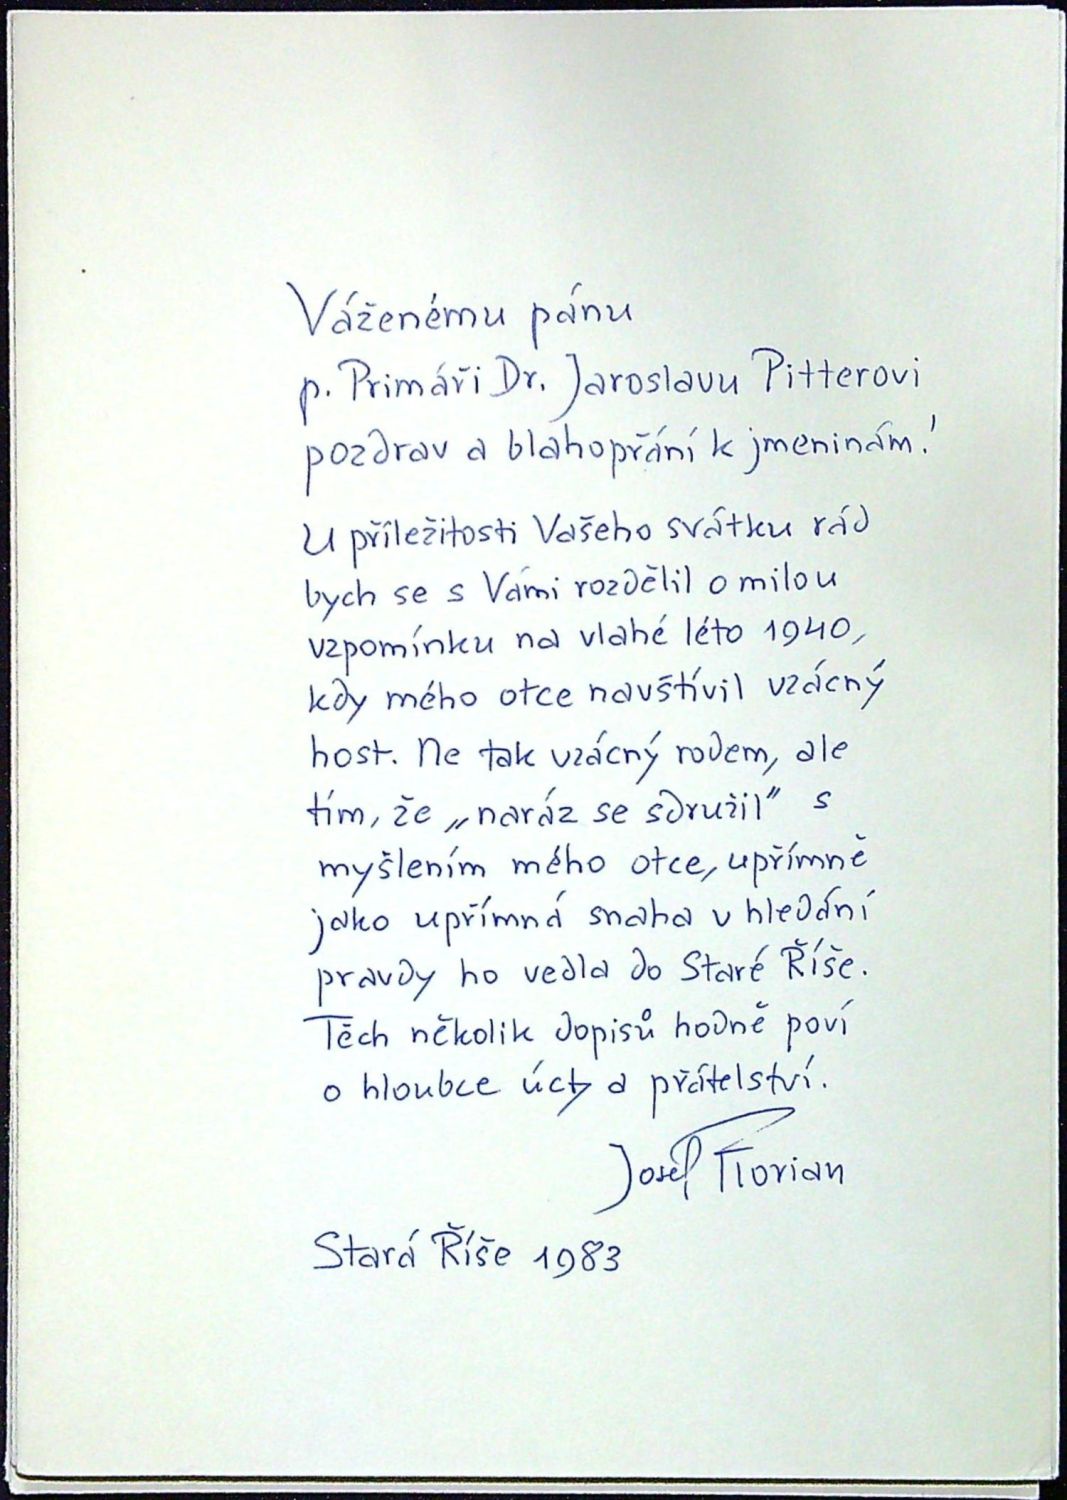 Váženému pánu
p. Primáři Dr. Jaroslavu Pitterovi
pozdrav a blahopřání k jmeninám!
U příležitosti Vašeho svátku rád
bych se s Vámi rozdělil o milou
vzpomínku na vlahé léto 1940,
kdy mého otce navštívil vzácný
host. Ne tak vzácný rodem, ale
tím, že „naráz se sdružil" s
myšlením mého otce, upřímně
jako upřímná snaha v hledání
pravdy ho vedla do Staré Říše.
Těch několik dopisů hodně poví
o hloubce úcty a přátelství.
Josef Florian
Stará Říše 1983